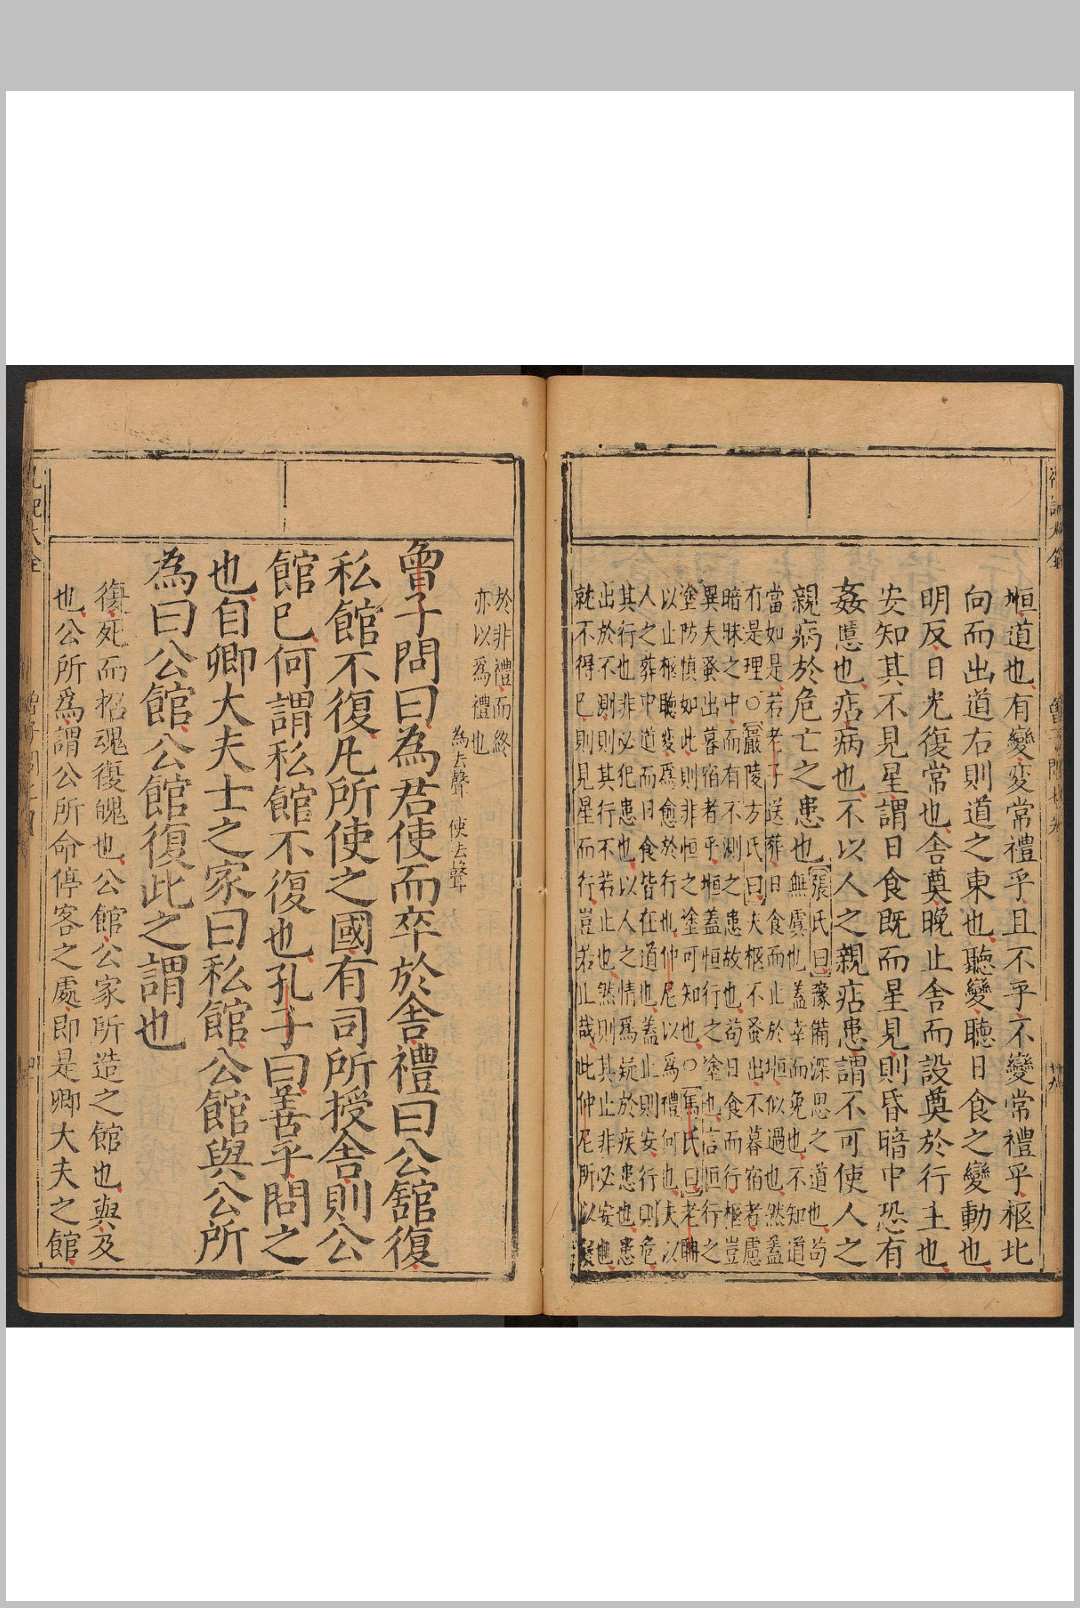 堩道也有變変常禮乎且不乎不變常禮乎柩北
向而出道右則道之東也聽變聽日食之變動也
明反日光復常也舍奠晚止舍而設奠於行主也
安知其不見星謂日食既而星見則昏暗中恐有
姦慝也痁病也不以人之親痁患謂不可使人之
親病於危亡之患也
張氏曰豫備深思之道也苟
無虞也蓋幸而免也不知道
當如是若老子送葬日食而止於堩似過也然蓋
有是理○嚴陵方氏曰夫柩不蚤出不暮宿者慮
暗昧之中而有不測之患故也苟日食而行柩豈
異夫蚤出暮宿者乎堩蓋恒行之塗也言恒行之
塗防慎如此則非恒之塗可知也○馬氏曰老聃
以止柩聽變爲愈於行也仲尼以爲禮何也夫以
人之葬中道而日食皆在道也蓋止則安行則危
其行也非必犯患也以人之情爲疑於疾患也患
出於不測則其行不若止也然則其止非必安也
就不得已則見星而行豈若止哉此仲尼所以
於非禮而終
亦以爲禮也
為去聲 使去聲
曾子問曰為君使而卒於舍禮曰公館復
私館不復凡所使之國有司所授舍則公
館已何謂私館不復也孔子曰善乎問之
也自卿大夫士之家曰私館公館與公所
為曰公館公館復此之謂也
復死而招魂復魄也公館公家所造之館也與及
也公所爲謂公所命停客之處即是卿大夫之館